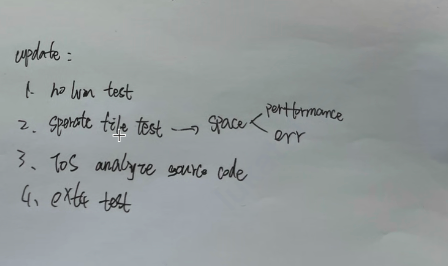 update:
1. no lvm test
2. sperate file test → space < performance
err
3. ToS analyze source code
4. ext4 test